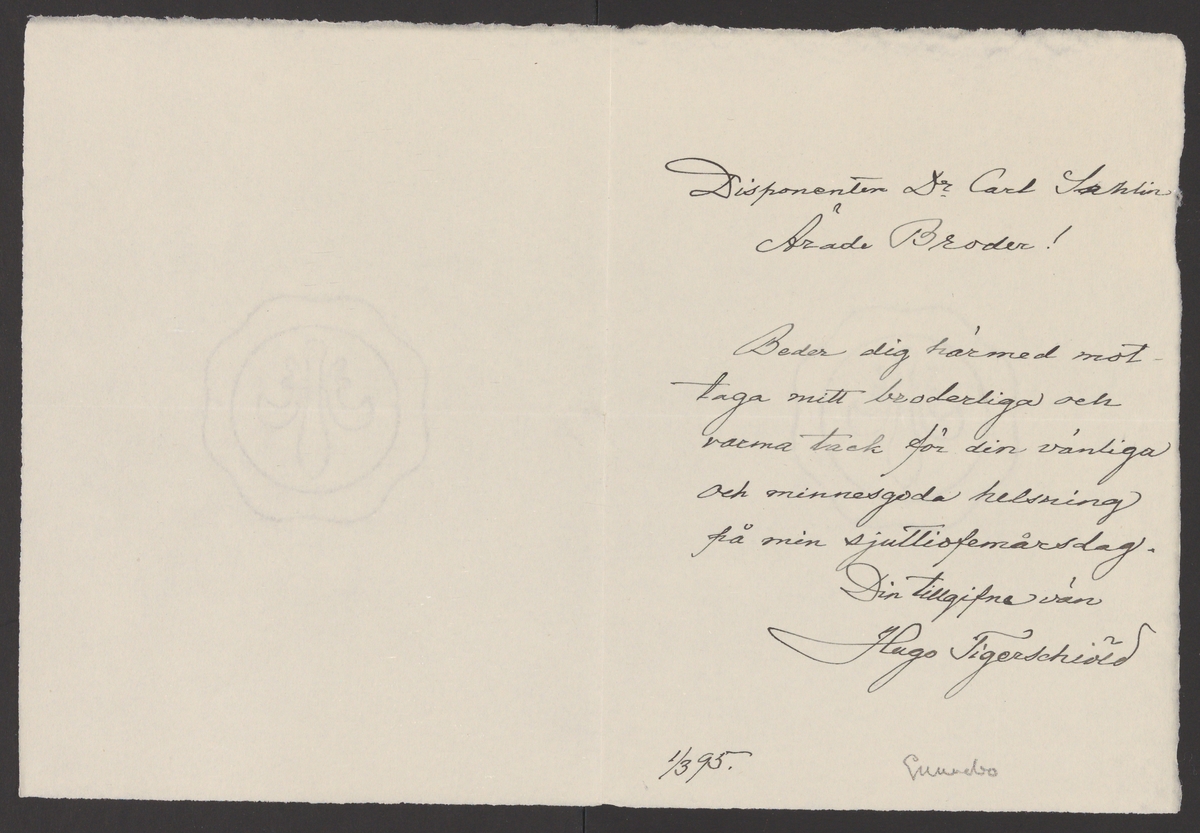 Disponenten Dr. Carl Sahlin
Ärade Broder!
Beder dig härmed mot-
taga mitt broderliga och
varma tack för din vänliga
och minnesgoda helsning
på min sjuttiofemårsdag.
Din tillgifne vän
Hugo Tigerschiöld
1/3 95.